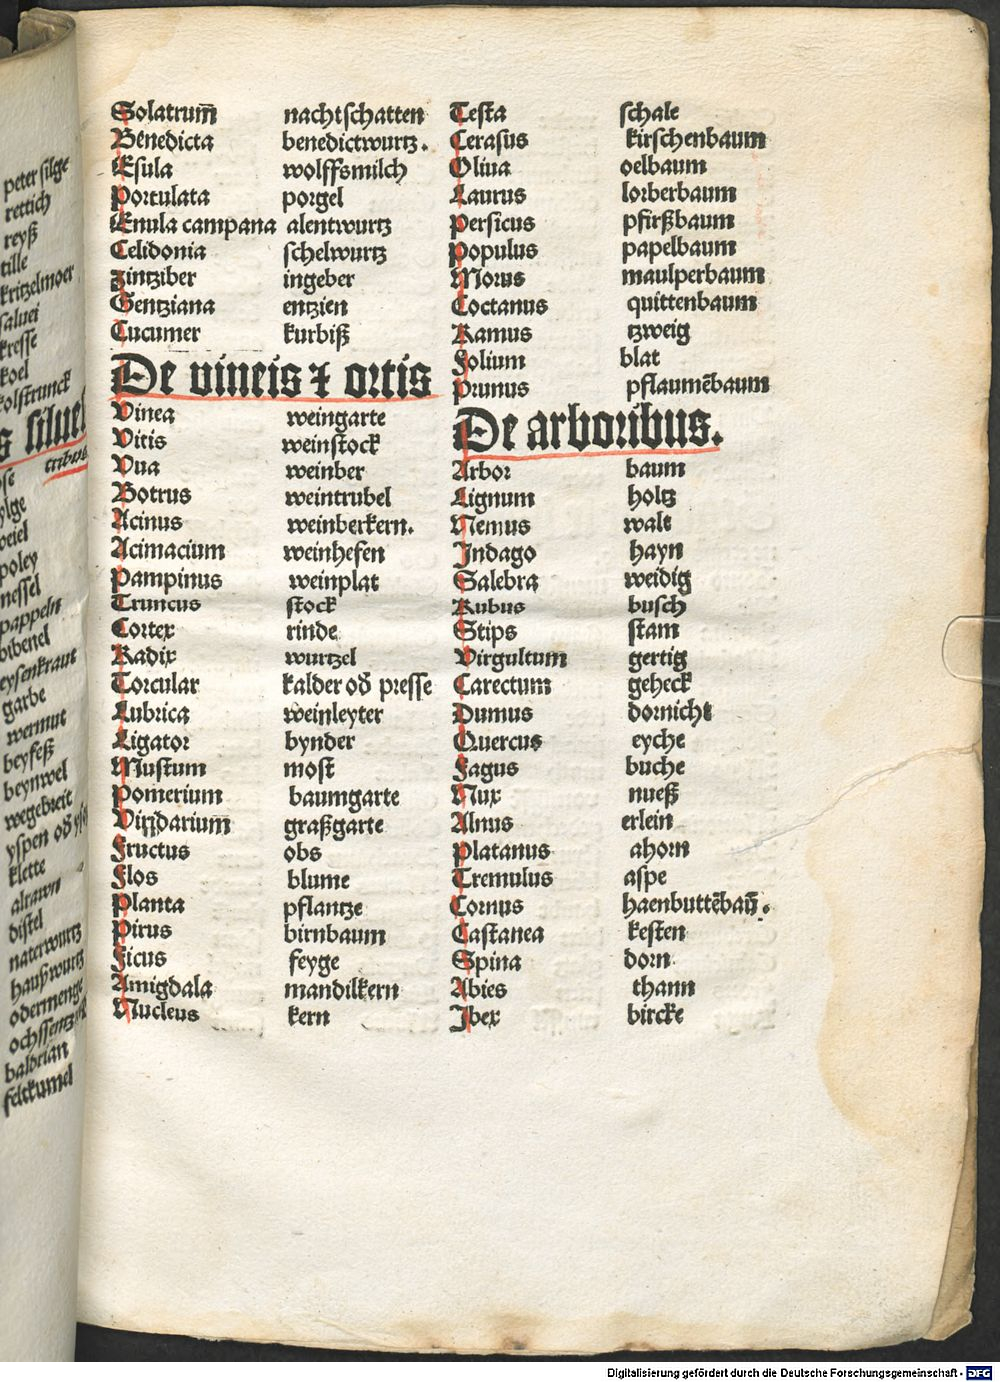 peter silge
rettich
reyß
tille
kritzelmoer
saluei
kresse
koel
kolstrunck
s siluest
tribus
ose
ylge
veiel
poley
nessel
pappeln
bibenel
eysenkraut
garbe
wermut
beyfeß
beynwel
wegebreit
yspen od̄
klette
altawn
distel
naterwurtz
haußwurtz
odermenge
ochssentz
baldrian
feltkumel
Solatrum̄ nachtschatten
Benedicta benedictwurtz.
Esula wolffsmilch
Portulata porgel
Enula campana alentwurtz
Celidonia schelwurtz
Zintziber ingeber
Gentziana entzien
Cucumer kurbiß
De vineis ⁊ ortis
Vinea weingarte
Vitis weinstock
Vua weinber
Botrus weintrubel
Acinus weinberkern.
Acimacium weinhefen
Pampinus weinplat
Truncus stock
Cortex rinde
Radix wurtzel
Torcular kalder od̄ presse
Lubrica weinleyter
Ligator bynder
Mustum most
Pomerium baumgarte
Viridarium̄ graßgarte
Fructus obs
Flos blume
Planta pflantze
Pirus birnbaum
Ficus feyge
Amigdala mandilkern
Nucleus kern
Testa schale
Cerasus kirschenbaum
Oliua oelbaum
Laurus lorberbaum
Persicus pfirßbaum
Populus papelbaum
Morus maulperbaum
Coctanus quittenbaum
Ramus tzweig
Folium blat
Prunus pflaumēbaum
De arboribus.
Arbor baum
Lignum holtz
Nemus walt
Indago hayn
Salebra weidig
Rubus busch
Stips stam
Virgultum gertig
Carectum geheck
Dumus dornicht
Quercus eyche
Fagus buche
Nux nueß
Alnus erlein
Platanus ahorn
Tremulus aspe
Cornus haenbuttēbau̅.
Castanea kesten
Spina dorn
Abies thann
Ibex bircke
Digitalisierung gefördert durch die Deutsche Forschungsgemeinschaft - DFG